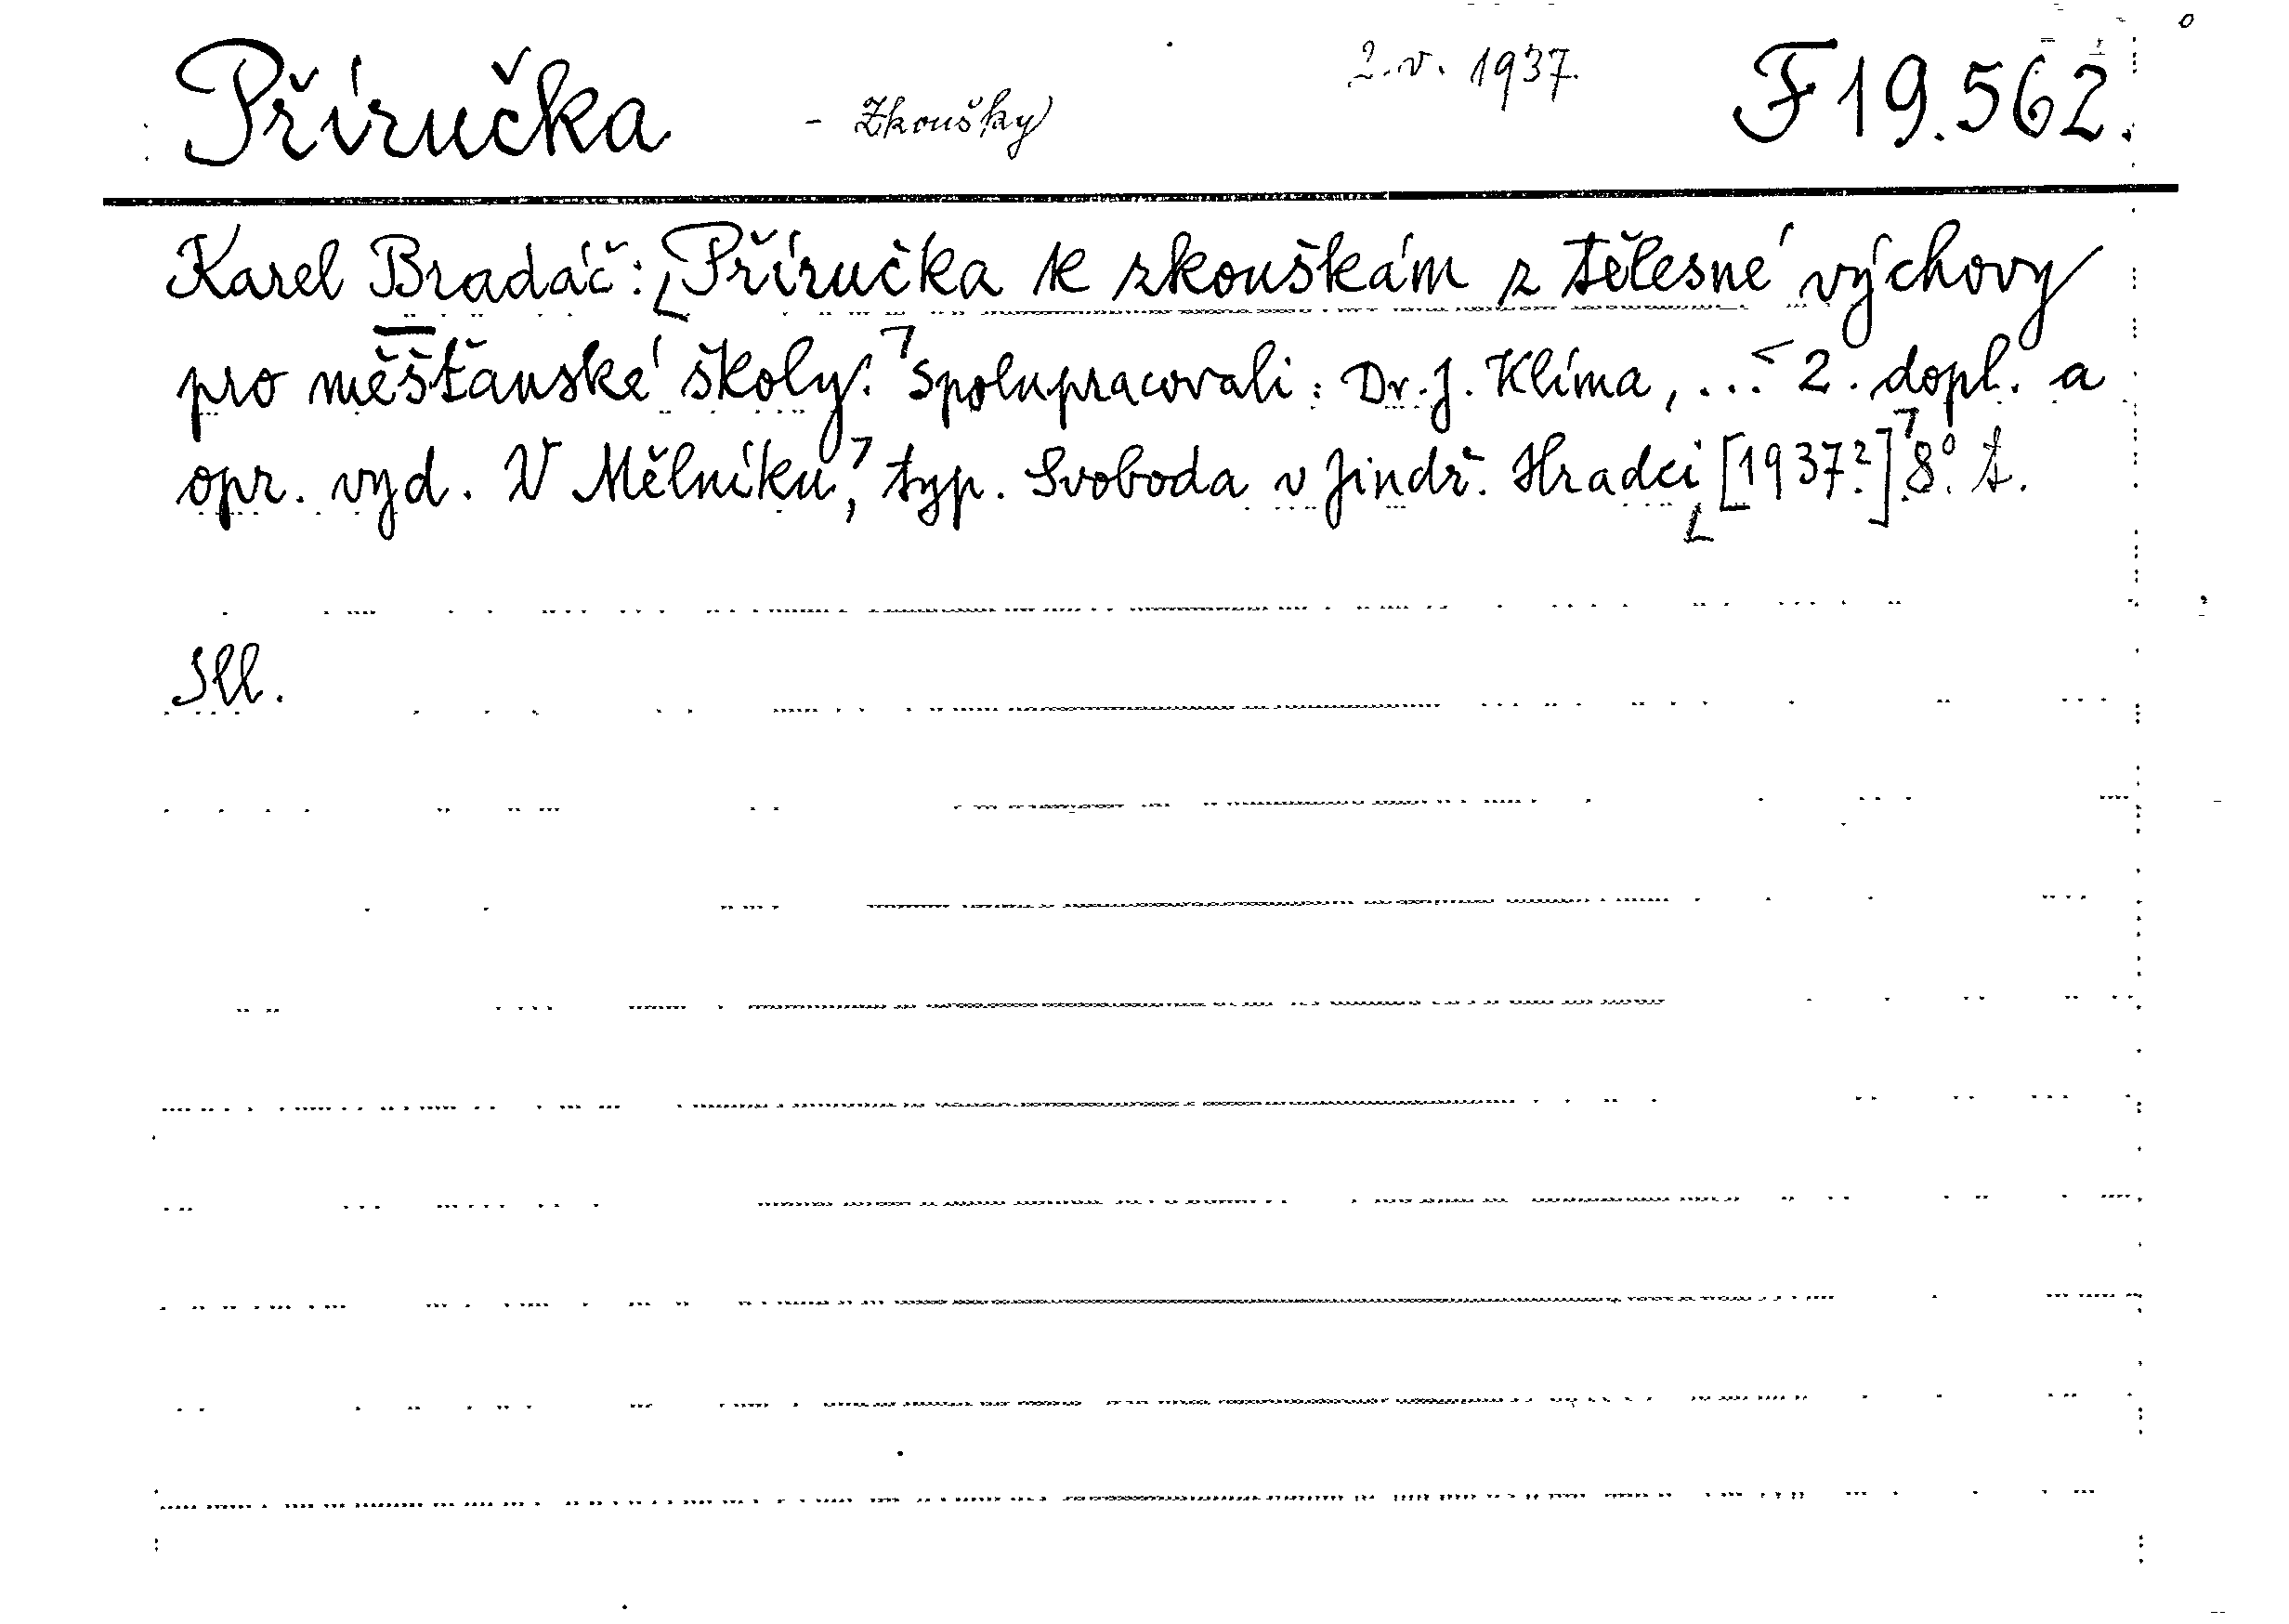 Příručka - Zkoušky 2. v. 1937. F 19.562.
Karel Bradáč: Příručka k zkouškám z tělesné výchovy
pro měšťanské školy. Spolupracovali: Dr. J. Klíma, ... 2. dopl. a
opr. vyd. V Mělníku, typ. Svoboda v Jindř. Hradci [1937?] 8°. t.
Ill.